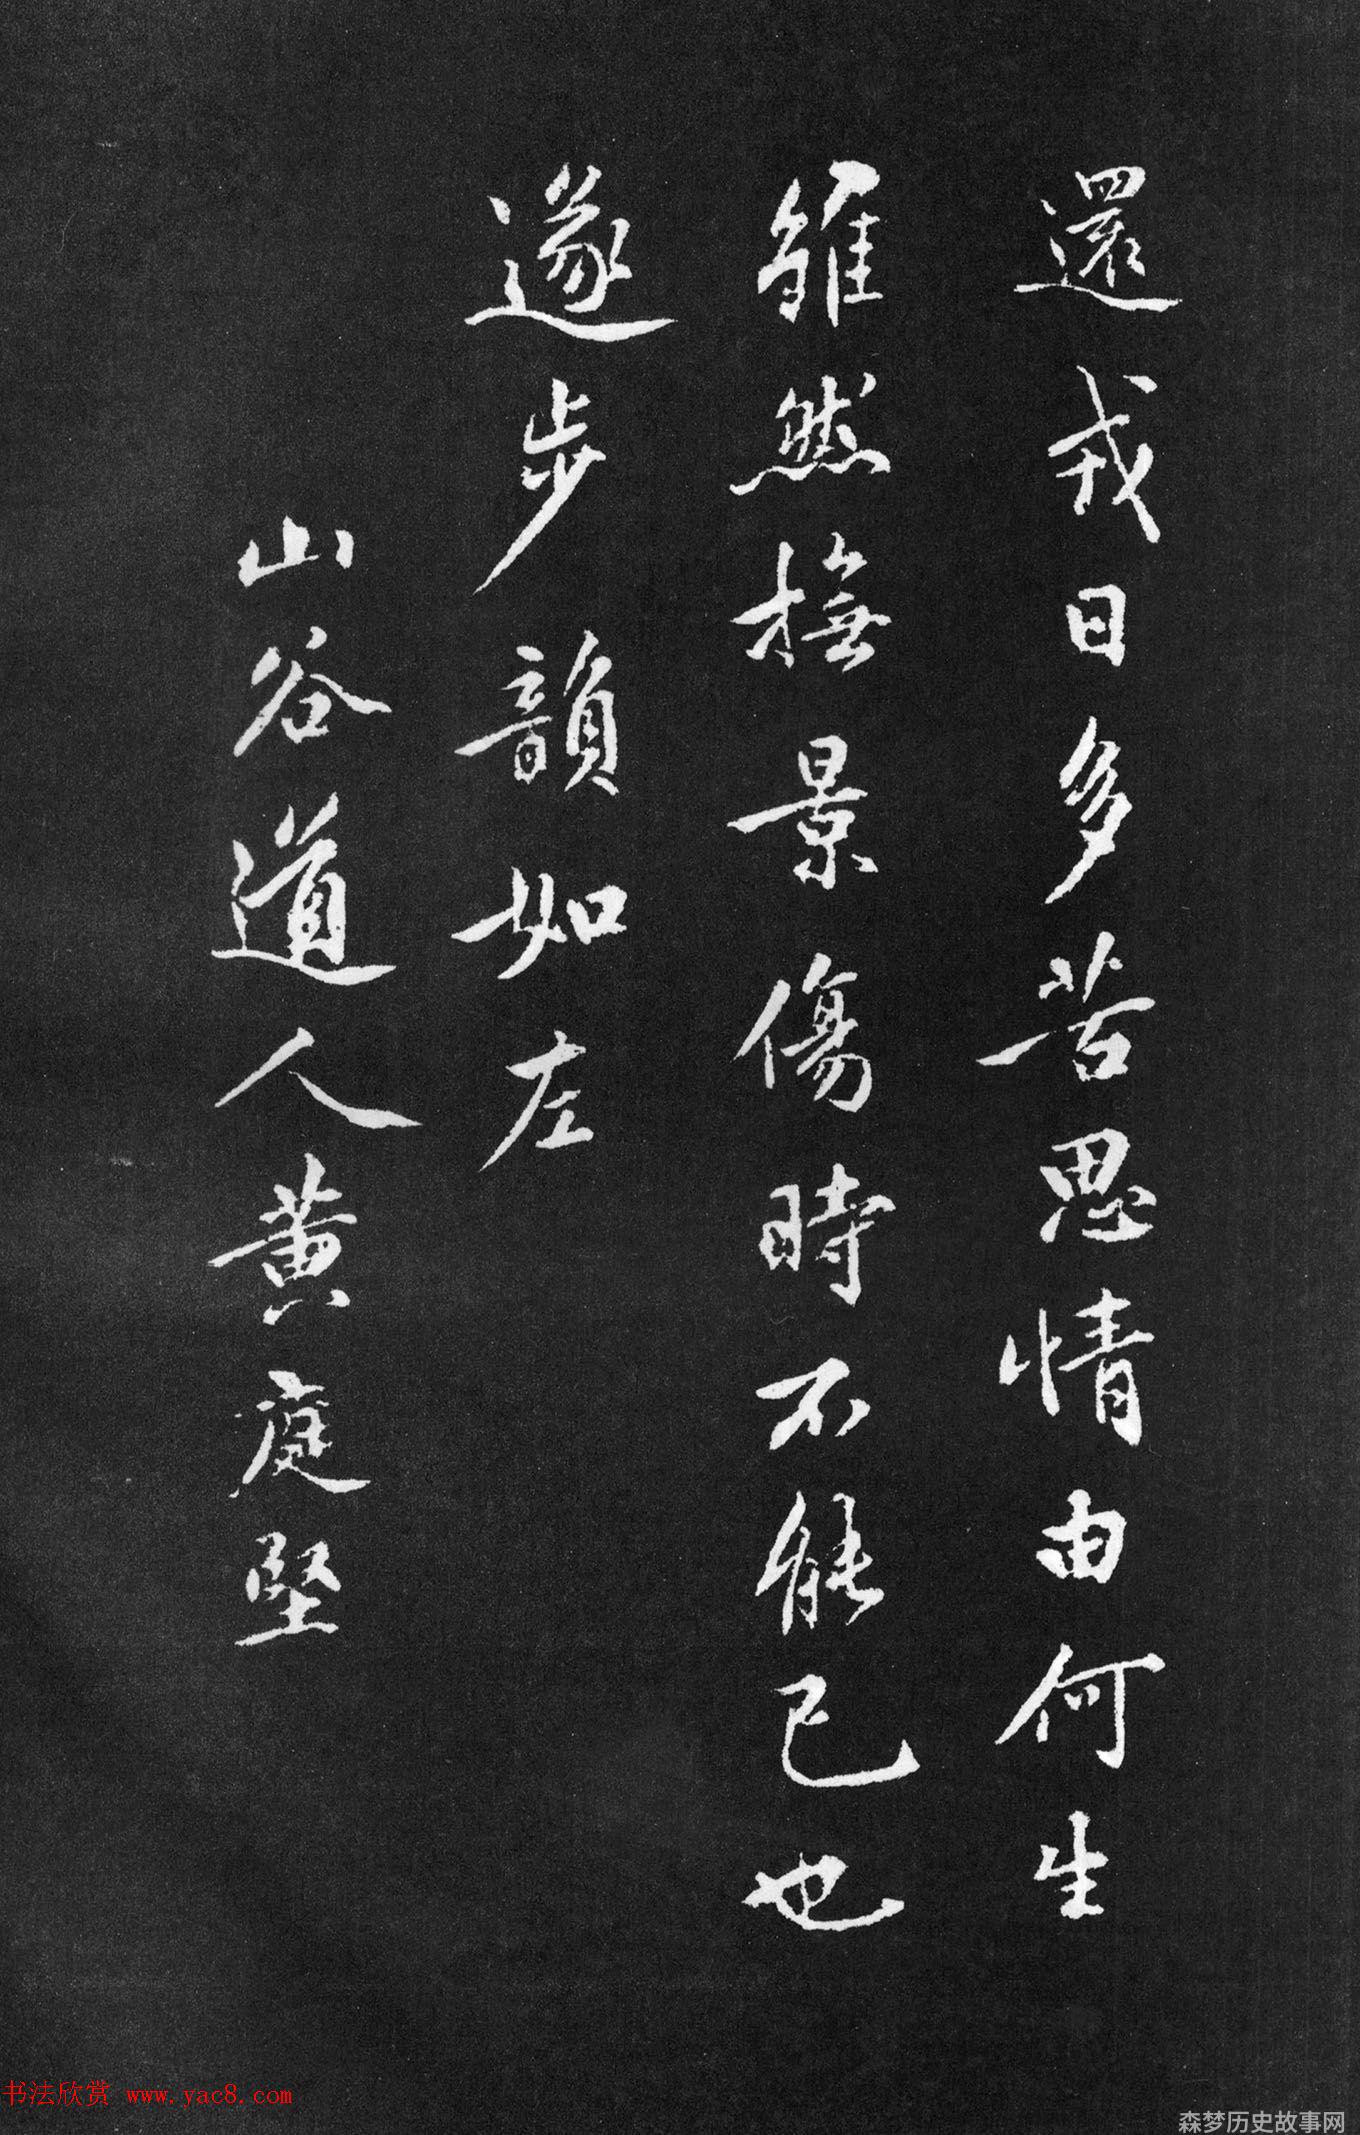 還戎日多苦思情由何生
雖然撫景傷時不能已也
遂步韻如左
山谷道人黄庭堅
书法欣赏 www.yac8.com
森梦历史故事网